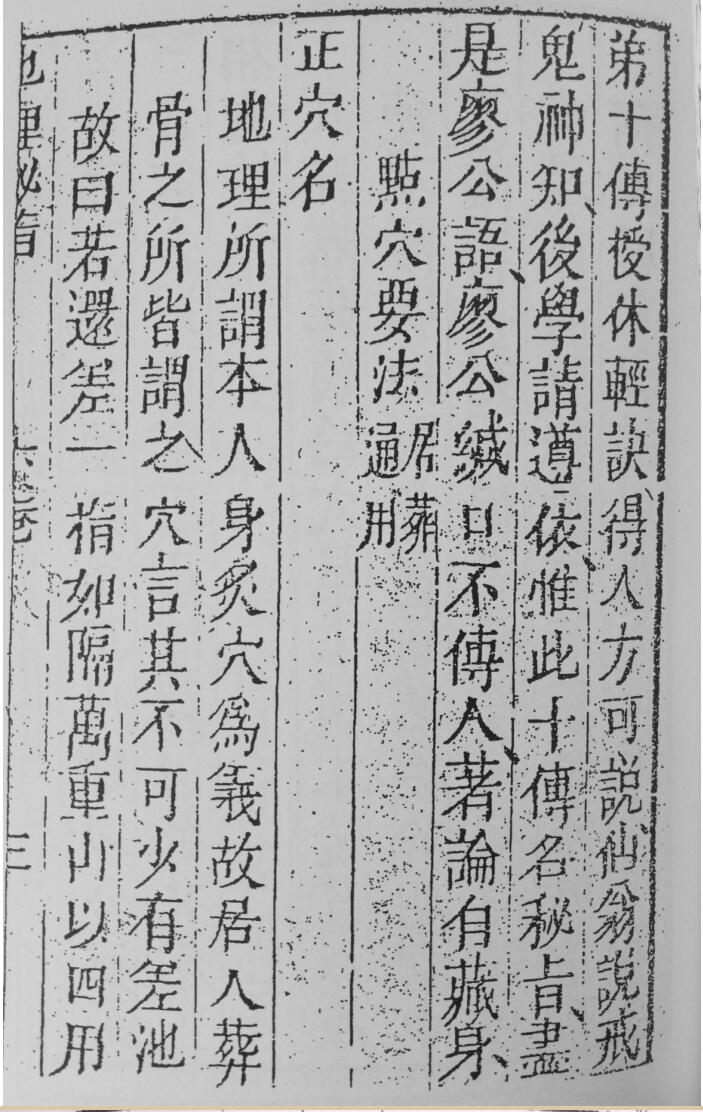 弟十傳授休輕訣、得人方可說、仙翁說戒
鬼神知、後學請遵依、惟此十傳名秘旨、盡
是廖公語、廖公緘口不傳人、著論自藏身、
點穴要法居葬通用
正穴名
地理所謂本人身炙穴為義故居人葬
骨之所皆謂之穴言其不可少有差池
故曰若還差一指如隔萬重山以四刑
地理秘旨 三